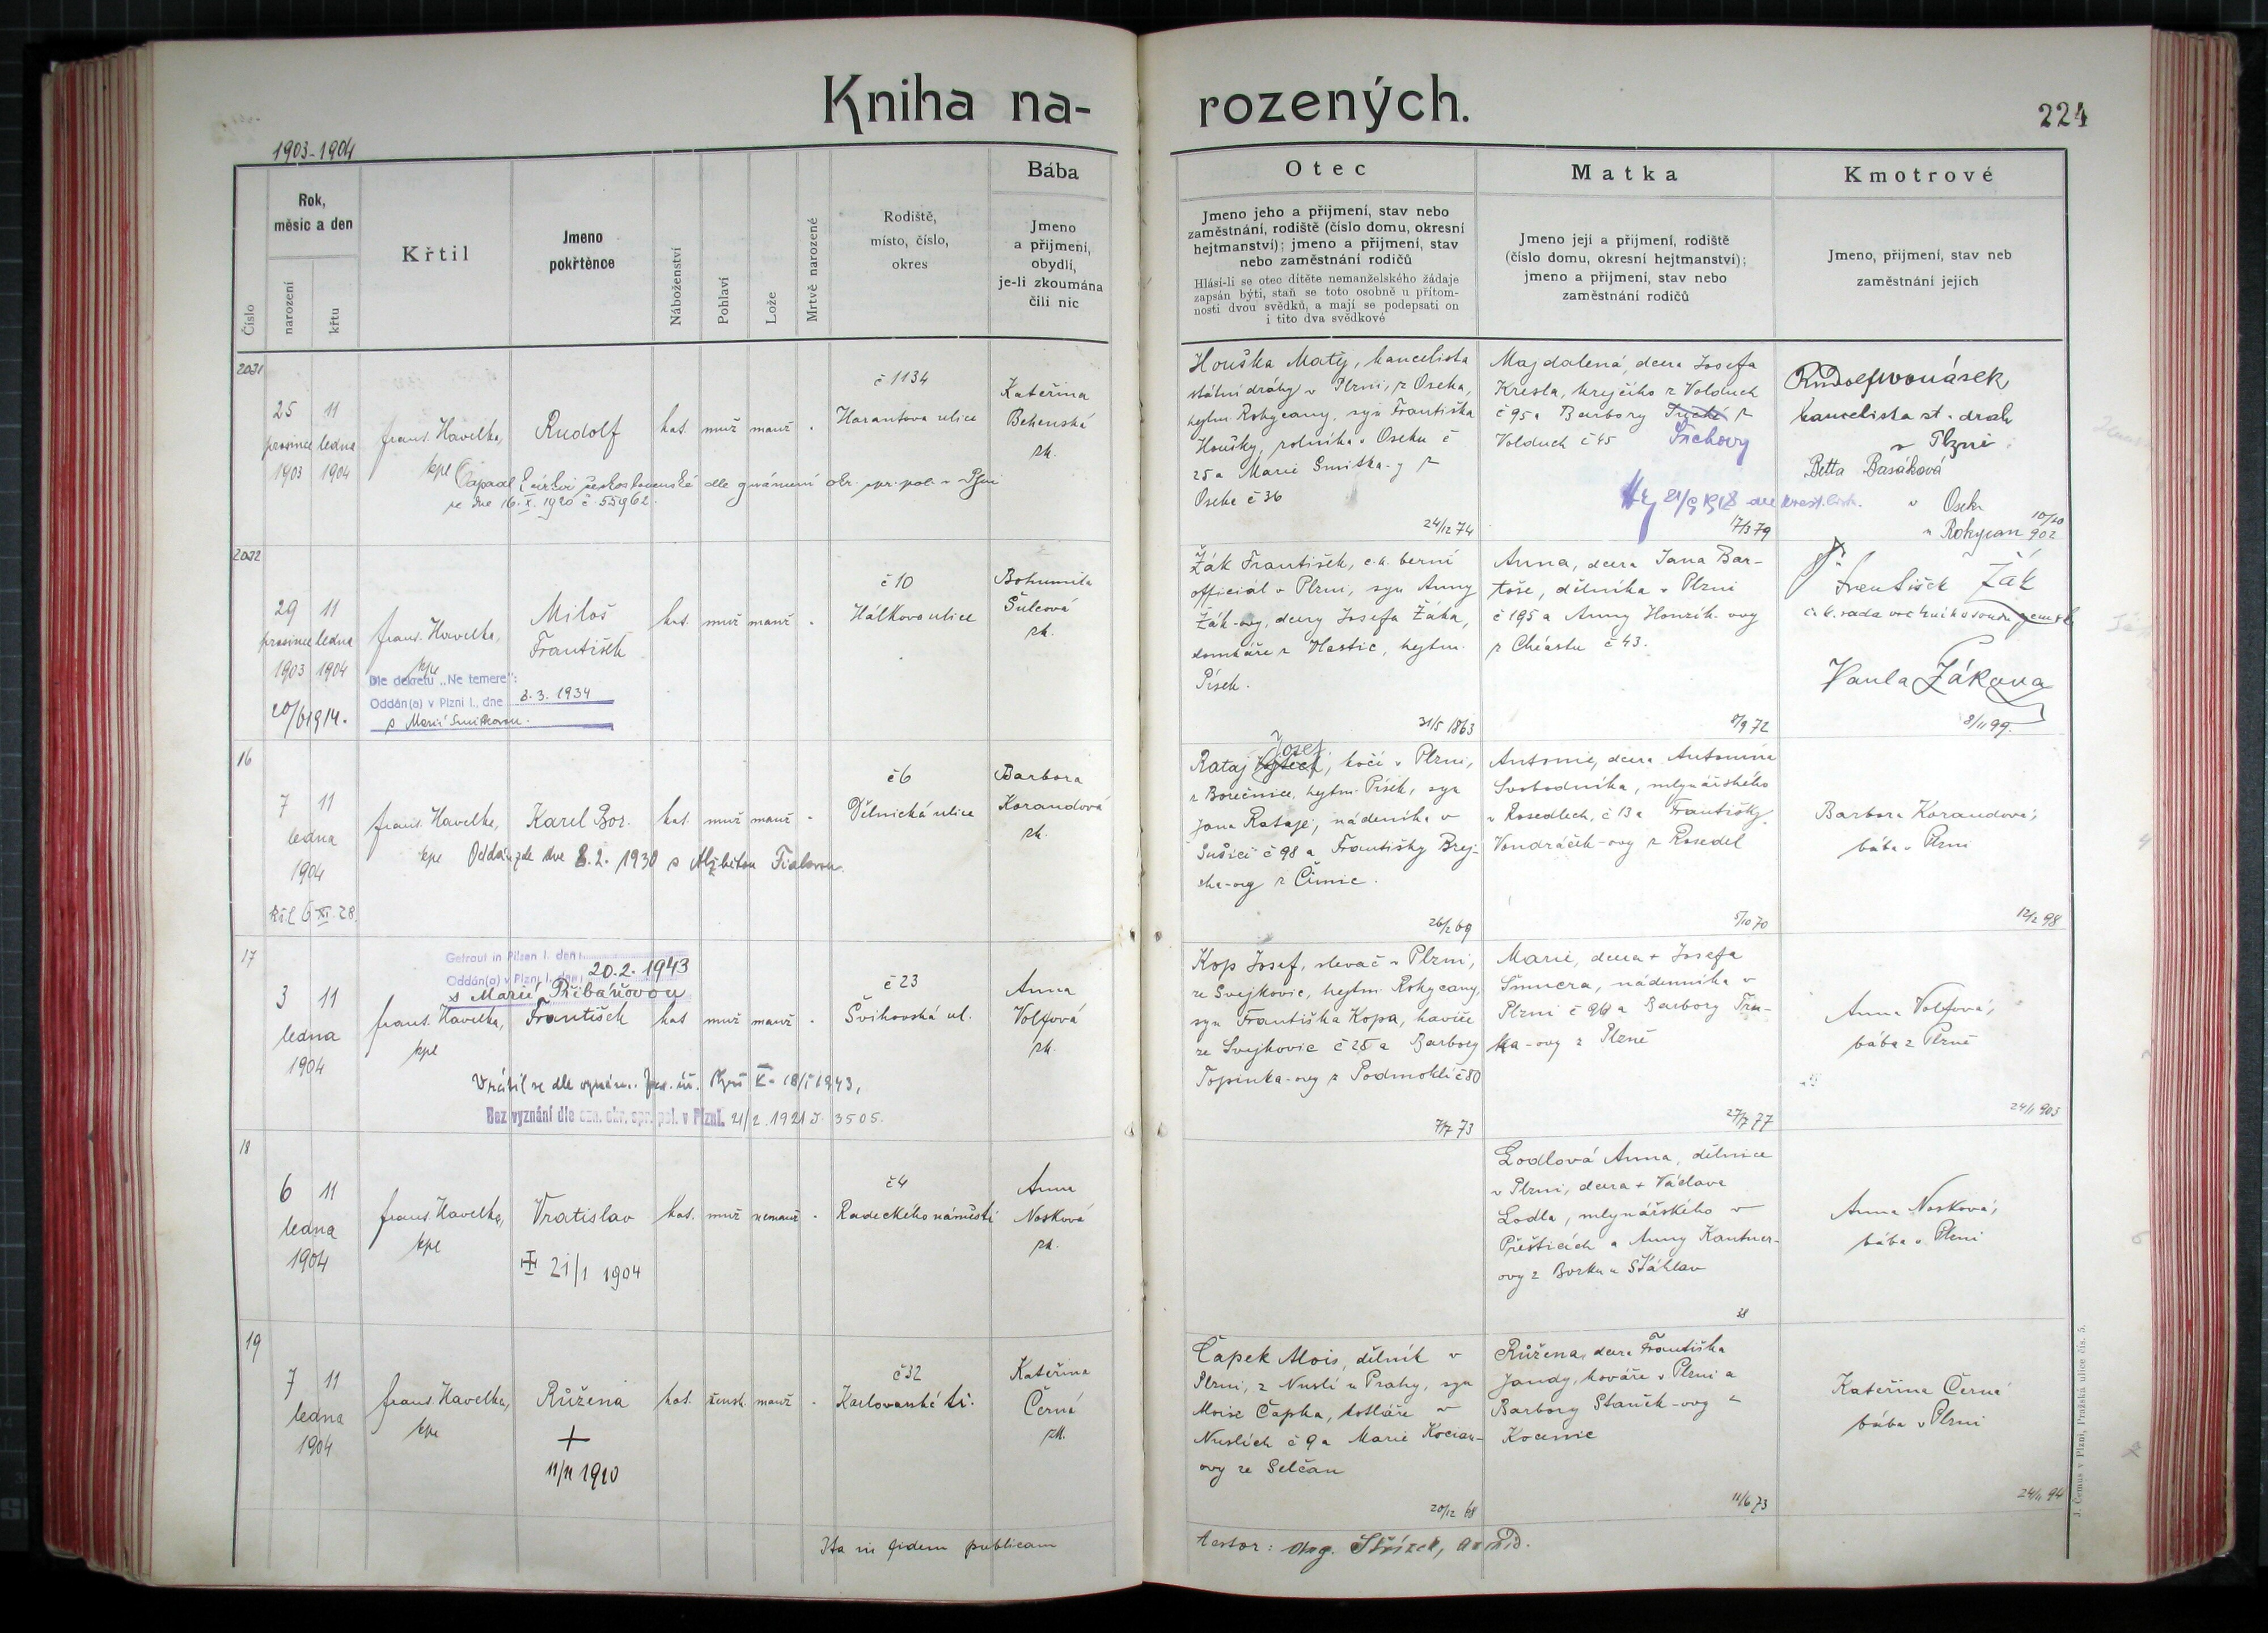 Kniha na-
rozených.
224
1903-1904
Číslo
Rok,
měsíc a den
narození
křtu
Křtil
Jmeno
pokřtěnce
Náboženství
Pohlaví
Lože
Mrtvě narozené
Rodiště,
místo, číslo,
okres
Bába
Jmeno
a přijmení,
obydlí,
je-li zkoumána
čili nic
Otec
Jmeno jeho a přijmení, stav nebo
zaměstnání, rodiště (číslo domu, okresní
hejtmanství); jmeno a přijmení, stav
nebo zaměstnání rodičů
Hlásí-li se otec dítěte nemanželského žádaje
zapsán býti, staň se toto osobně u přítom-
nosti dvou svědků, a mají se podepsati on
i tito dva svědkové
Matka
Jmeno její a přijmení, rodiště
(číslo domu, okresní hejtmanství);
jmeno a přijmení, stav nebo
zaměstnání rodičů
Kmotrové
Jmeno, přijmení, stav neb
zaměstnání jejich
25 11
prosince ledna
1903 1904
frant. Havelka,
kpl
Rudolf
kat.
muž
manž
č 1134
Harantova ulice
Kateřina
Behenská
zk.
církvi československé dle
ze dne 16. X. 1920 č 55962.
Houška Matěj, kancelista
státní dráhy v Plzni, z Oseka,
hejtm Rokycany, syn Františka
Houšky, rolníka v Oseku č
25 a Marie Smitka-y z
Oseka č 36
24/12 74
Majdalena, dcera Josefa
Kresla, krejčího z Volduch
č 95 a Barbory z
Volduch č 45
17/3 79
kancelista st. drah
v Plzni
Betta Basáková
Osek
u Rokycan
2022
29 11
prosince ledna
1903 1904
frant. Havelka,
kpl
Dle dekretu „Ne temere":
Oddán(a) v Plzni I., dne 3. 3. 1934
s Marií Smitkovou.
20/6 1914.
Miloš
František
kat.
muž
manž
č 10
Hálkova ulice
Bohumila
Šulcová
zk.
Žák František, c.k. berní
officiál v Plzni, syn Anny
Žák-ovy, dcery Josefa Žáka,
domkáře z Vlastic, hejtm.
Písek.
31/5 1863
Anna, dcera Jana Bar-
toše, dělníka v Plzni
č 195 a Anny Honzík-ovy
z Chrástu č 43.
8/9 72
František Žák
c. k. rada
Pavla Žáková
8/11 99.
16
7 11
ledna
1904
frant. Havelka,
kpl
Karel Bor.
kat.
muž
manž
č 6
Dělnická ulice
Barbora
Korandová
zk.
Oddán zde dne 8. 2. 1930 s Alžbětou Fialovou.
Josef
Rataj , kočí v Plzni,
z Borečnice, hejtm. Písek, syn
Jana Rataje, nádeníka v
Sušici č 98 a Františky Brej-
cha-ovy z Čimic.
26/2 69
Antonie, dcera Antonína
Svobodníka, mlynářského
v Rosedlech, č 13 a Františky
Vondráček-ovy z Rosedel
5/10 70
Barbora Korandová,
bába v Plzni
12/2 98
17
Getraut in Pilsen I. den
Oddán(a) v Plzni I., dne 20. 2. 1943
s Marií Přibáňovou
3 11
ledna
1904
frant. Havelka,
kpl
František
kat
muž
manž
č 23
Švihovská ul.
Anna
Volfová
zk.
Bez vyznání dle ozn. okr. spr. pol. v Plzni. 21/2. 1921 č. 3505.
Kop Josef, slevač v Plzni,
ze Svejkovic, hejtm. Rokycany,
syn Františka Kopa, havíře
ze Svejkovic č 28 a Barbory
Topinka-ovy z Podmoklí č 80
7/7 73
Marie, dcera + Josefa
Šmucra, nádenníka v
Plzni č 96 a Barbory Trn-
ka-ovy z Plzně
27/7 77
Anna Volfová,
bába z Plzně
24/1 903
18
6 11
ledna
1904
frant. Havelka,
kpl
Vratislav
21/1 1904
kat.
muž
nemanž
č 4
Radeckého náměstí
Anna
Nosková
zk.
Lodlová Anna, dělnice
v Plzni, dcera + Václava
Lodla, mlynářského v
Přešticích a Anny Kantner-
ovy z Borku u Stáhlav
Anna Nosková,
bába v Plzni
19
7 11
ledna
1904
frant. Havelka,
kpl
Růžena
+
11/11 1910
kat.
žensk.
manž
č 32
Karlovarská tř.
Kateřina
Černá
zk.
Čapek Alois, dělník v
Plzni, z Nuslí u Prahy, syn
Aloise Čapka, kotláře v
Nuslích č 9 a Marie Kocian-
ovy ze Selčan
20/12 68
Růžena, dcera Františka
Jandy, kováře v Plzni a
Barbory Staněk-ovy z
Kocenic
11/6 73
Kateřina Černá
bába v Plzni
24/11 94
Ita in fidem publicam
J. Čemus v Plzni, Pražská ulice čís. 5.